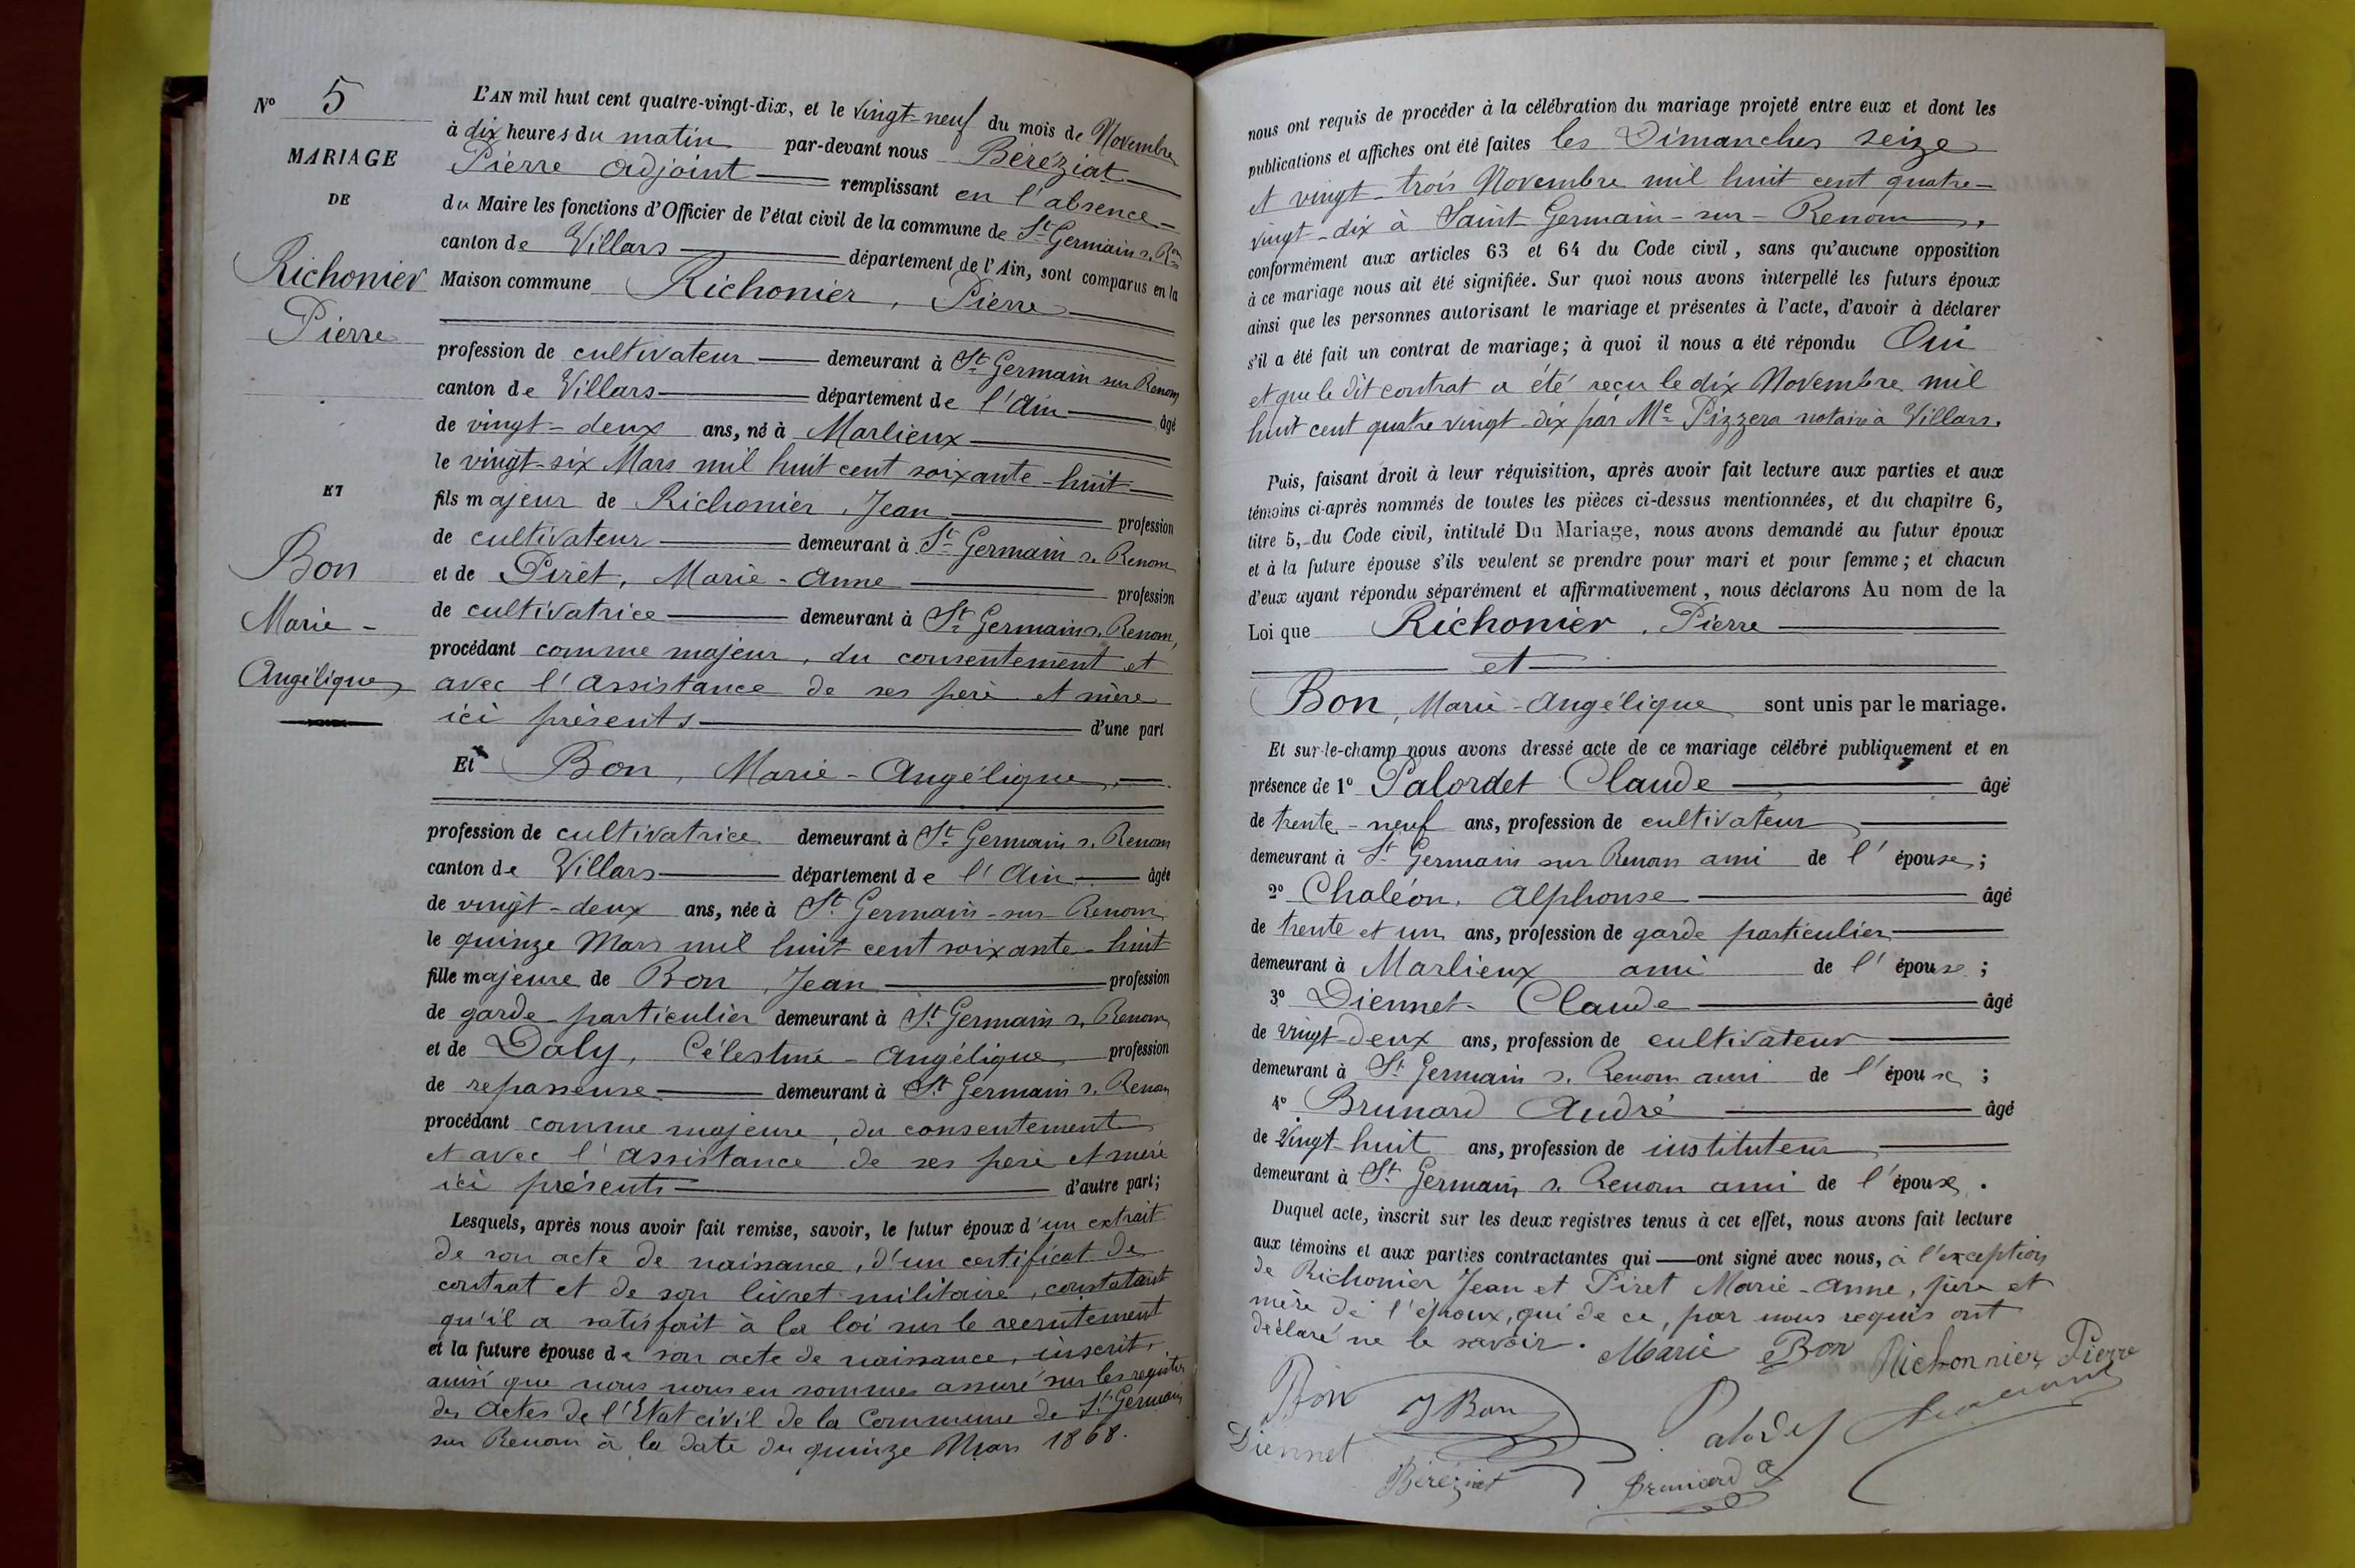 N° 5
MARIAGE
DE
Richonier
Pierre
ET
Bon
Marie-
Angélique
L'AN mil huit cent quatre-vingt-dix, et le vingt-neuf du mois de Novembre
à dix heures du matin par-devant nous Béréziat
Pierre adjoint remplissant en l'absence
du Maire les fonctions d'Officier de l'état civil de la commune de St Germain s. Rm
canton de Villars département de l'Ain, sont comparus en la
Maison commune Richonier, Pierre
profession de cultivateur demeurant à St Germain sur Renom
canton de Villars département de l'Ain âgé
de vingt-deux ans, né à Marlieux
le vingt-six Mars mil huit cent soixante-huit
fils majeur de Richonier, Jean profession
de cultivateur demeurant à St Germain s. Renom
et de Piret, Marie-Anne profession
de cultivatrice demeurant à St Germain s. Renom,
procédant comme majeur, du consentement et
avec l'assistance de ses père et mère
ici présents d'une part
Et Bon, Marie-Angélique,
profession de cultivatrice demeurant à St Germain s. Renom
canton de Villars département de l'Ain âgée
de vingt-deux ans, née à St Germain-sur-Renom
le quinze Mars mil huit cent soixante-huit
fille majeure de Bon, Jean profession
de garde particulier demeurant à St Germain s. Renom
et de Daly, Célestine-Angélique profession
de repasseuse demeurant à St Germain s. Renom
procédant comme majeure, du consentement
et avec l'assistance de ses père et mère
ici présents d'autre part;
Lesquels, après nous avoir fait remise, savoir, le futur époux d'un extrait
de son acte de naissance, d'un certificat de
contrat et de son livret militaire, constatant
qu'il a satisfait à la loi sur le recrutement
et la future épouse de son acte de naissance, inscrit,
ainsi que nous nous en sommes assuré sur les registres
des Actes de l'Etat civil de la Commune de St Germain
sur Renom à la date du quinze Mars 1868.
nous ont requis de procéder à la célébration du mariage projeté entre eux et dont les
publications et affiches ont été faites les Dimanches seize
et vingt-trois Novembre mil huit cent quatre-
vingt-dix à Saint-Germain-sur-Renom,
conformément aux articles 63 et 64 du Code civil, sans qu'aucune opposition
à ce mariage nous ait été signifiée. Sur quoi nous avons interpellé les futurs époux
ainsi que les personnes autorisant le mariage et présentes à l'acte, d'avoir à déclarer
s'il a été fait un contrat de mariage; à quoi il nous a été répondu Oui
et que le dit contrat a été reçu le dix Novembre mil
huit cent quatre vingt-dix par Me Pizzera notaire à Villars.
Puis, faisant droit à leur réquisition, après avoir fait lecture aux parties et aux
témoins ci-après nommés de toutes les pièces ci-dessus mentionnées, et du chapitre 6,
titre 5, du Code civil, intitulé Du Mariage, nous avons demandé au futur époux
et à la future épouse s'ils veulent se prendre pour mari et pour femme; et chacun
d'eux ayant répondu séparément et affirmativement, nous déclarons Au nom de la
Loi que Richonier, Pierre
et
Bon, Marie-Angélique sont unis par le mariage.
Et sur-le-champ nous avons dressé acte de ce mariage célébré publiquement et en
présence de 1° Palordet Claude âgé
de trente-neuf ans, profession de cultivateur
demeurant à St Germain sur Renom ami de l'épouse;
2° Chaléon, Alphonse âgé
de trente et un ans, profession de garde particulier
demeurant à Marlieux ami de l'épouse;
3° Diennet Claude âgé
de vingt-deux ans, profession de cultivateur
demeurant à St Germain s. Renom ami de l'épouse;
4° Brunard André âgé
de vingt-huit ans, profession de instituteur
demeurant à St Germain s. Renom ami de l'épouse.
Duquel acte, inscrit sur les deux registres tenus à cet effet, nous avons fait lecture
aux témoins et aux parties contractantes qui ont signé avec nous, à l'exception
de Richonier Jean et Piret Marie-Anne, père et
mère de l'époux, qui de ce, par nous requis ont
déclaré ne le savoir.
Marie Bon Richonnier Pierre
Bon J Bon Palordet
Diennet
Béréziat Brunard a